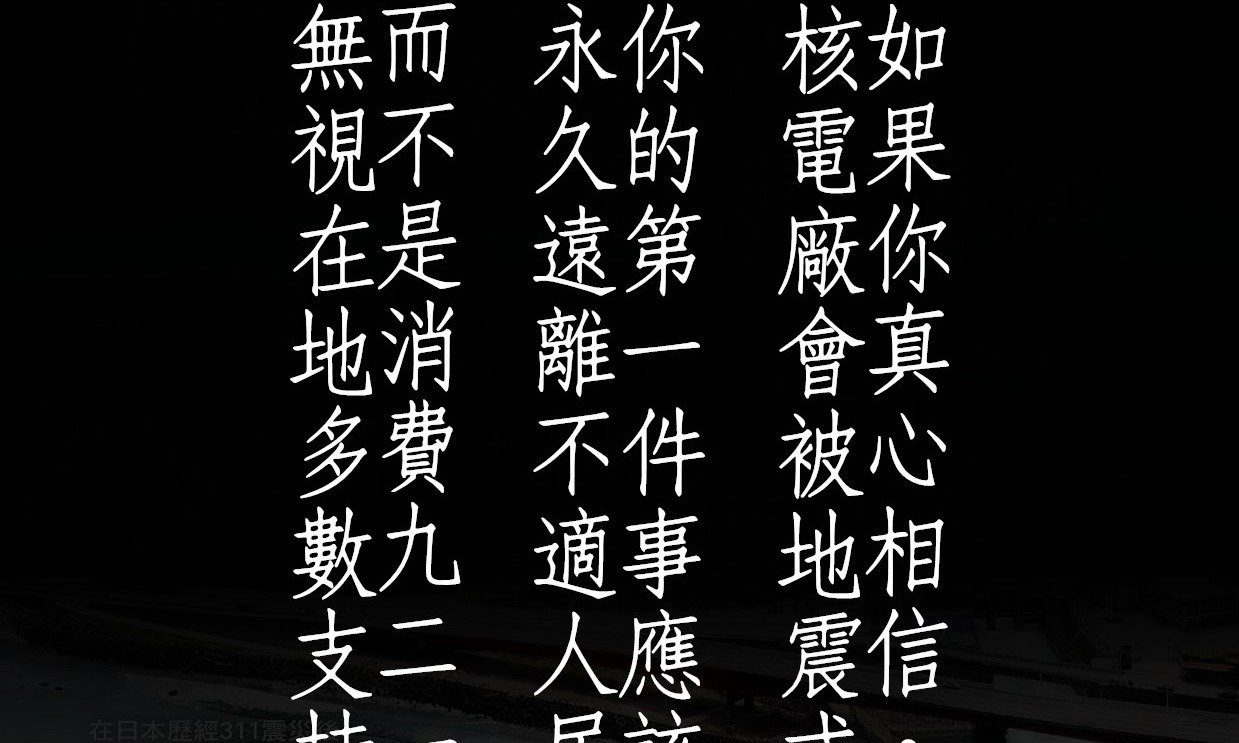 如果你真心相信
核電廠會被地震
你的第一件事應
永久遠離不適人
而不是消費九二
無視在地多數支
在日本歷經311震災